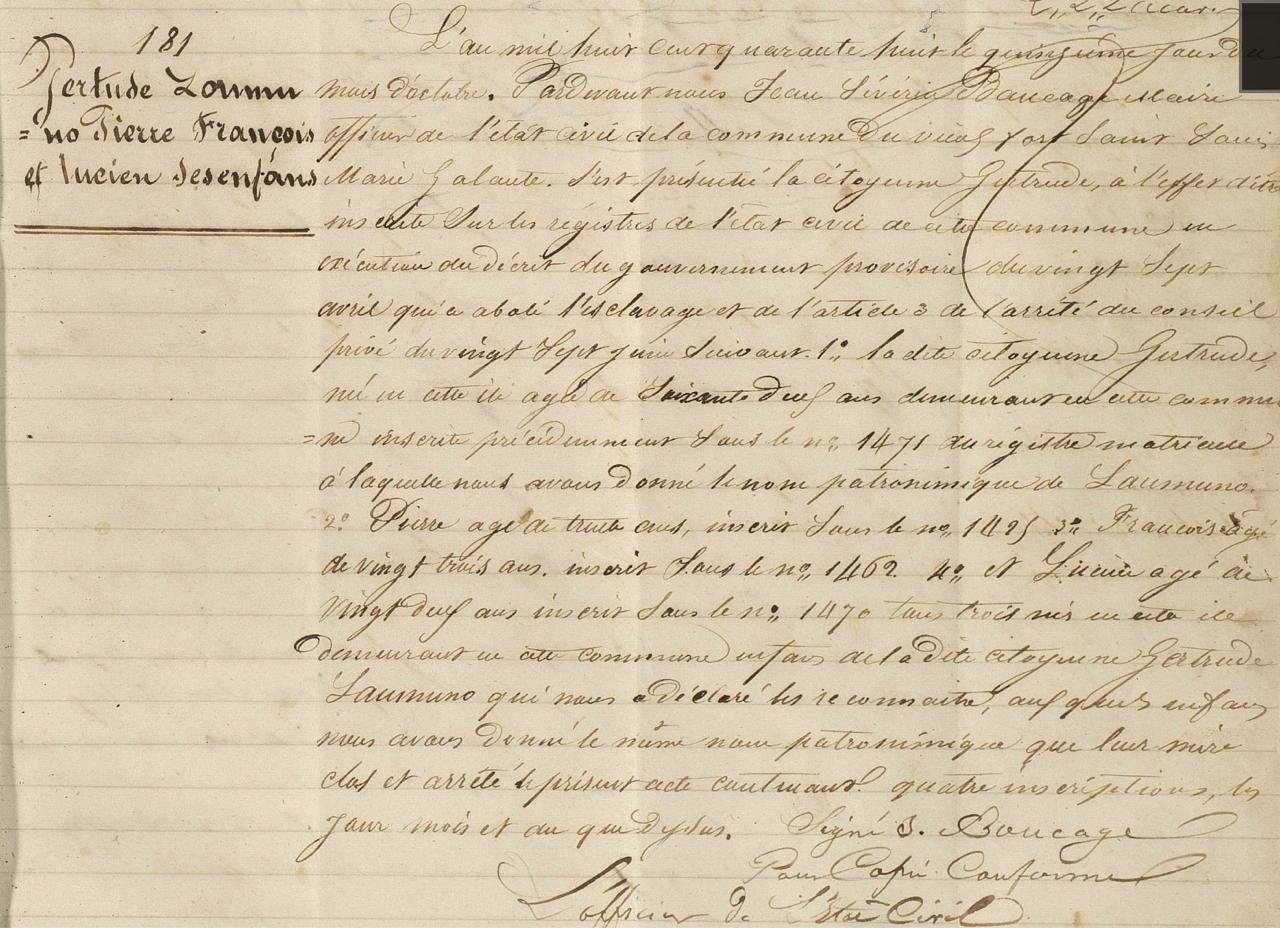 181
Gertude Zoumu
=no Pierre François
et Lucien ses enfans
L'an mil huit cent quarante huit le quinzième jour du
mois d'octobre. Pardevant nous Jean Sévérin Boucage Maire
officier de l'état civil de la commune du vieux fort Saint Louis
Marie Galante. S'est présenté la citoyenne Gertrude, à l'effet d'être
inscrite sur les régistres de l'état civil de cette commune en
exécution du décret du gouvernement provisoire du vingt Sept
avril qui a aboli l'esclavage et de l'article 3 de l'arrêté du conseil
privé du vingt Sept juin suivant. 1.º la dite citoyenne Gertrude,
né en cette ile agée de Soixante deux ans demeurant en cette commu
=ne inscrite précédemment Sous le nº 1471 du régistre matricule
à laquelle nous avons donné le nom patronimique de Laumuno.
2º Pierre agé de trente ans, inscrit Sous le nº 1425 3º François agé
de vingt trois ans. inscrit Sous le nº 1462 4º et Lucien agé de
vingt deux ans inscrit Sous le nº 1470 tous trois nés en cette ile
demeurant en cette commune enfans de la dite citoyenne Gertrude
Laumuno qui nous a déclaré les reconnaitre, aux quels enfans
nous avons donné le même nom patronimique que leur mère
clos et arrêté le présent acte contenant quatre inscriptions, les
jour mois et an que dessus. Signé S. Boucage
Pour Copie Conforme
L'officier de l'état Civil